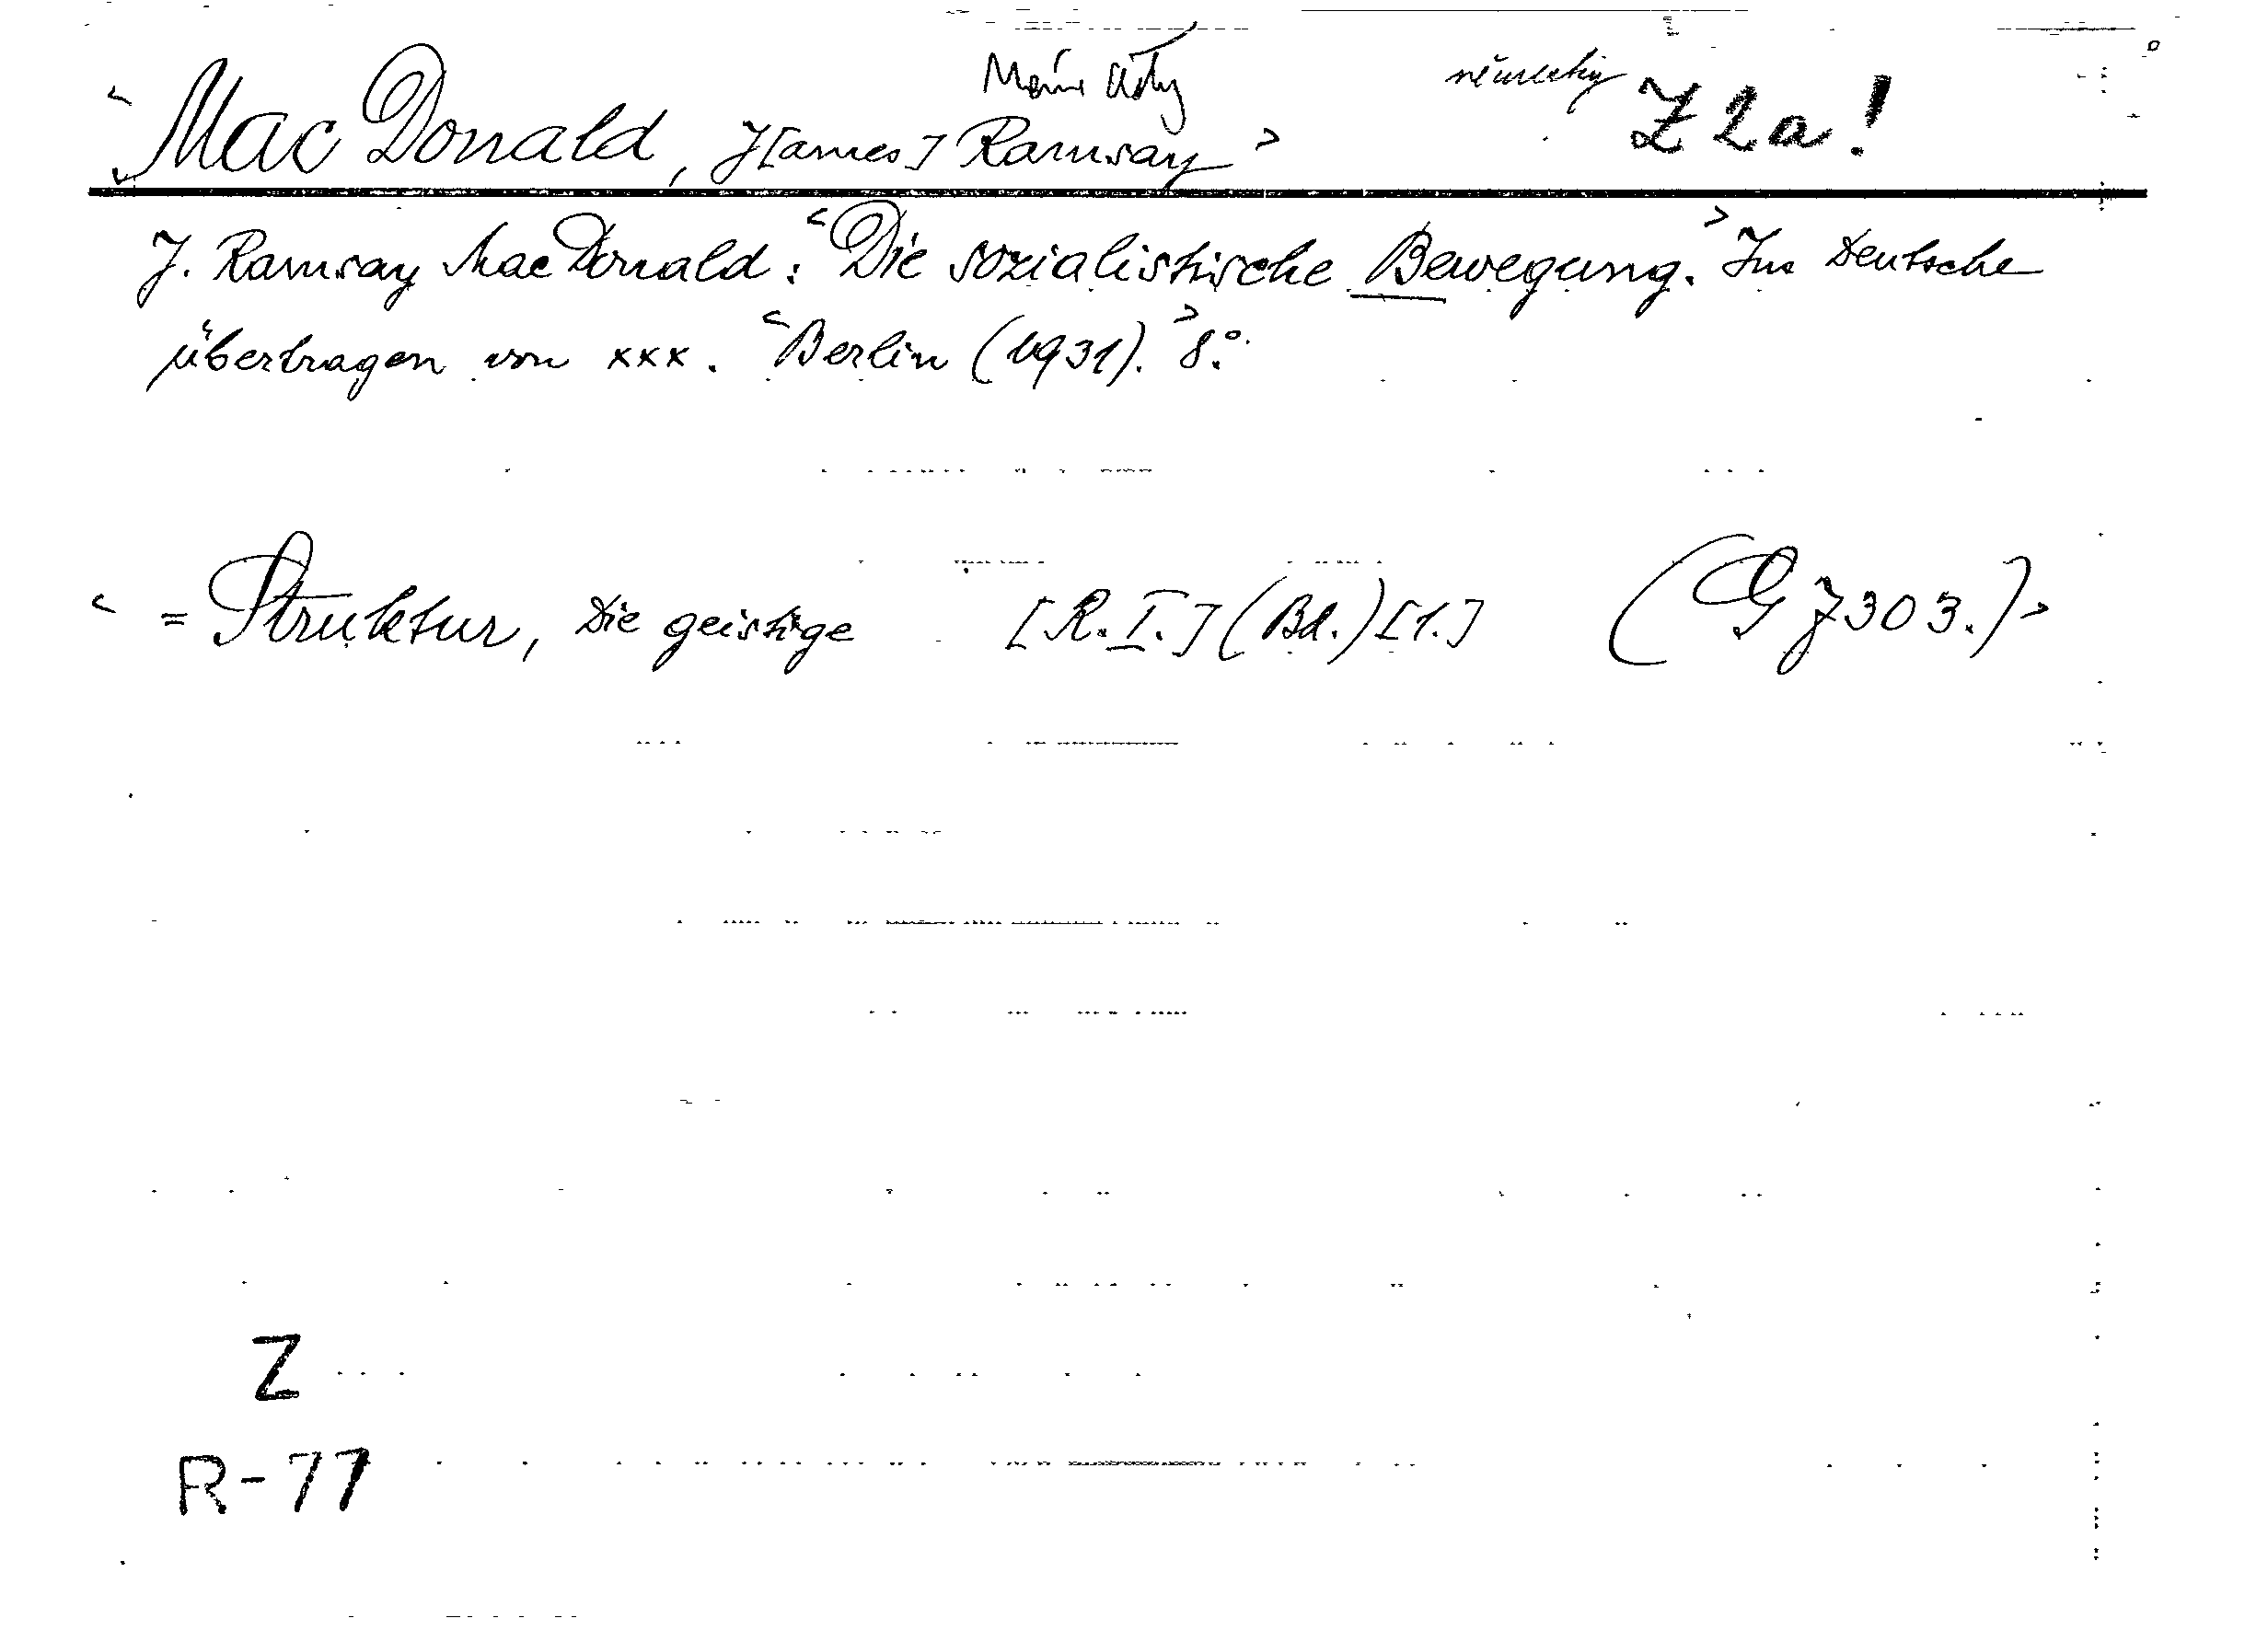 německy Z 2a!
"Mac Donald, J[ames] Ramsay>
J. Ramsay MacDonald: <Die sozialistische Bewegung.> Ins Deutsche
übertragen von xxx. <Berlin (1931).> 8°.
< = Struktur, Die geistige [R. I.] (Bd.) [1.] (G 7303.)>
Z
R-77